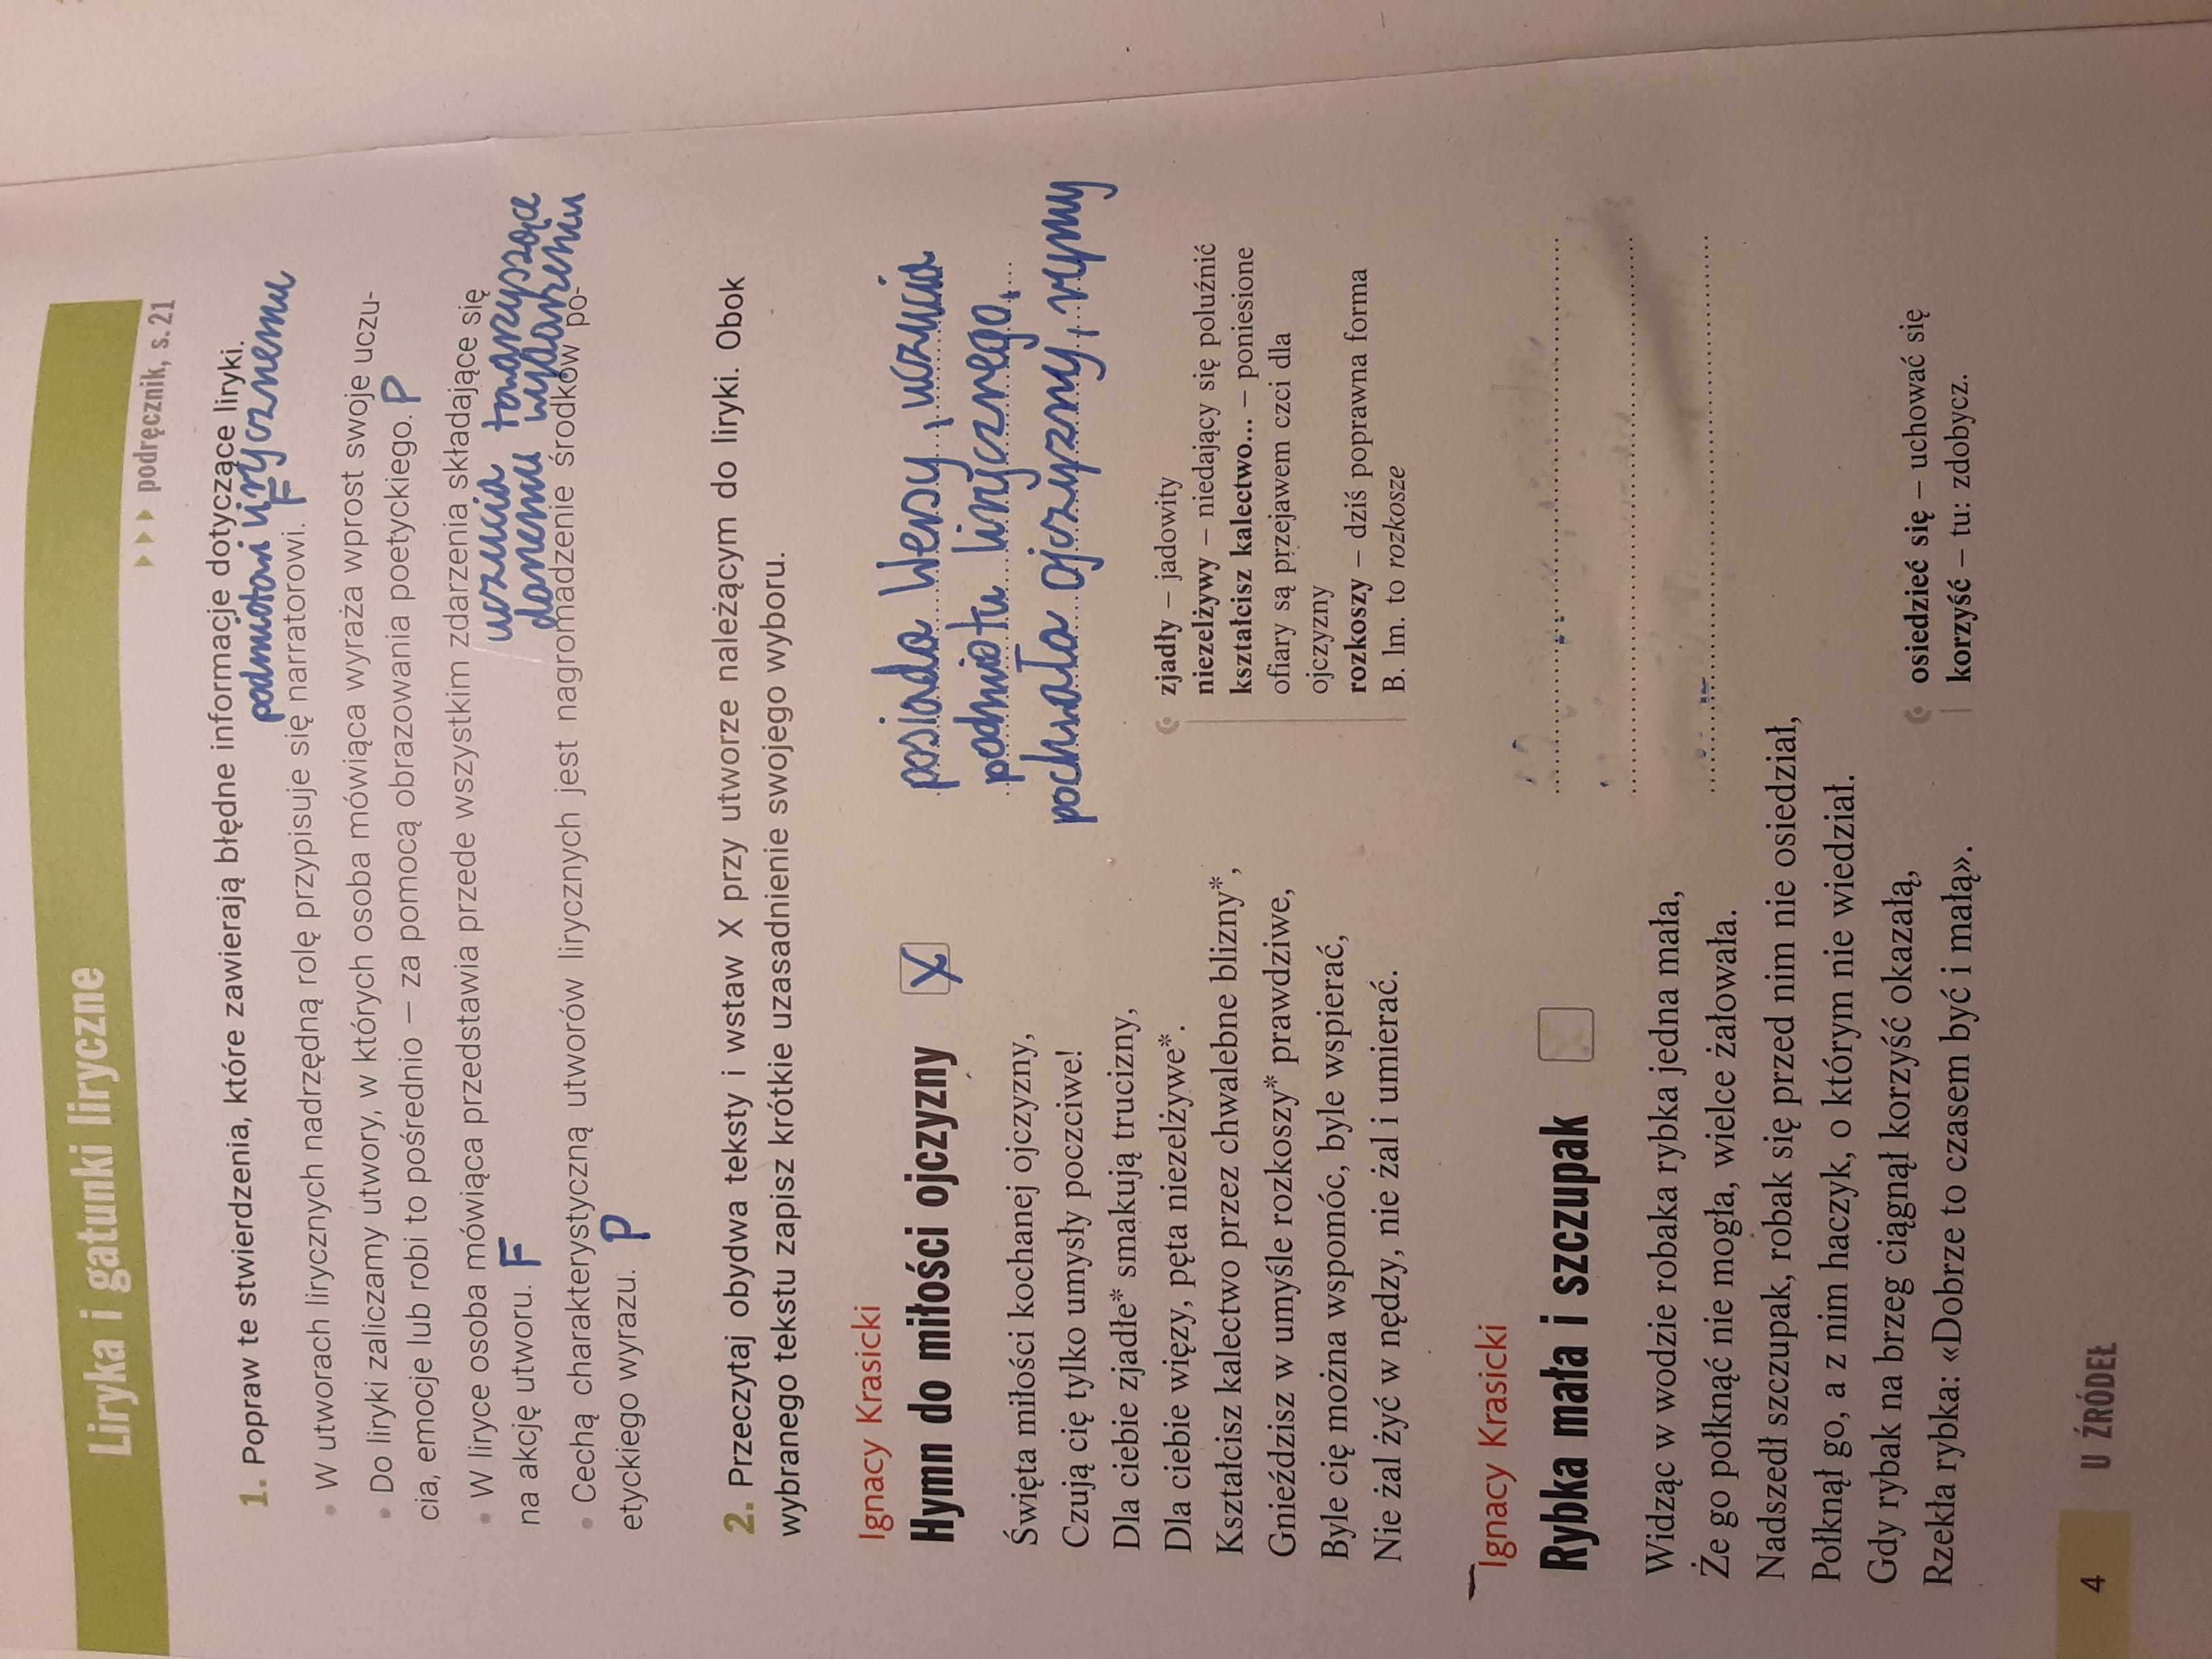 Liryka i gatunki liryczne
▸▸▸ podręcznik, s. 21
1. Popraw te stwierdzenia, które zawierają błędne informacje dotyczące liryki.
podmiotowi lirycznemu
• W utworach lirycznych nadrzędną rolę przypisuje się narratorowi. F
• Do liryki zaliczamy utwory, w których osoba mówiąca wyraża wprost swoje uczu-
cia, emocje lub robi to pośrednio – za pomocą obrazowania poetyckiego. P
• W liryce osoba mówiąca przedstawia przede wszystkim zdarzenia składające się
na akcję utworu. F uczucia towarzyszące
danemu wydarzeniu
• Cechą charakterystyczną utworów lirycznych jest nagromadzenie środków po-
etyckiego wyrazu. P
2. Przeczytaj obydwa teksty i wstaw X przy utworze należącym do liryki. Obok
wybranego tekstu zapisz krótkie uzasadnienie swojego wyboru.
Ignacy Krasicki
Hymn do miłości ojczyzny X
Święta miłości kochanej ojczyzny,
Czują cię tylko umysły poczciwe!
Dla ciebie zjadłe* smakują trucizny,
Dla ciebie więzy, pęta niezelżywe*.
Kształcisz kalectwo przez chwalebne blizny*,
Gnieździsz w umyśle rozkoszy* prawdziwe,
Byle cię można wspomóc, byle wspierać,
Nie żal żyć w nędzy, nie żal i umierać.
posiada wersy, uczucia
podmiotu lirycznego,
pochwała ojczyzny, rymy
zjadły – jadowity
niezelżywy – niedający się poluźnić
kształcisz kalectwo... – poniesione
ofiary są przejawem czci dla
ojczyzny
rozkoszy – dziś poprawna forma
B. lm. to rozkosze
Ignacy Krasicki
Rybka mała i szczupak
Widząc w wodzie robaka rybka jedna mała,
Że go połknąć nie mogła, wielce żałowała.
Nadszedł szczupak, robak się przed nim nie osiedział,
Połknął go, a z nim haczyk, o którym nie wiedział.
Gdy rybak na brzeg ciągnął korzyść okazałą,
Rzekła rybka: «Dobrze to czasem być i małą».
osiedzieć się – uchować się
korzyść – tu: zdobycz.
4 U ŹRÓDEŁ